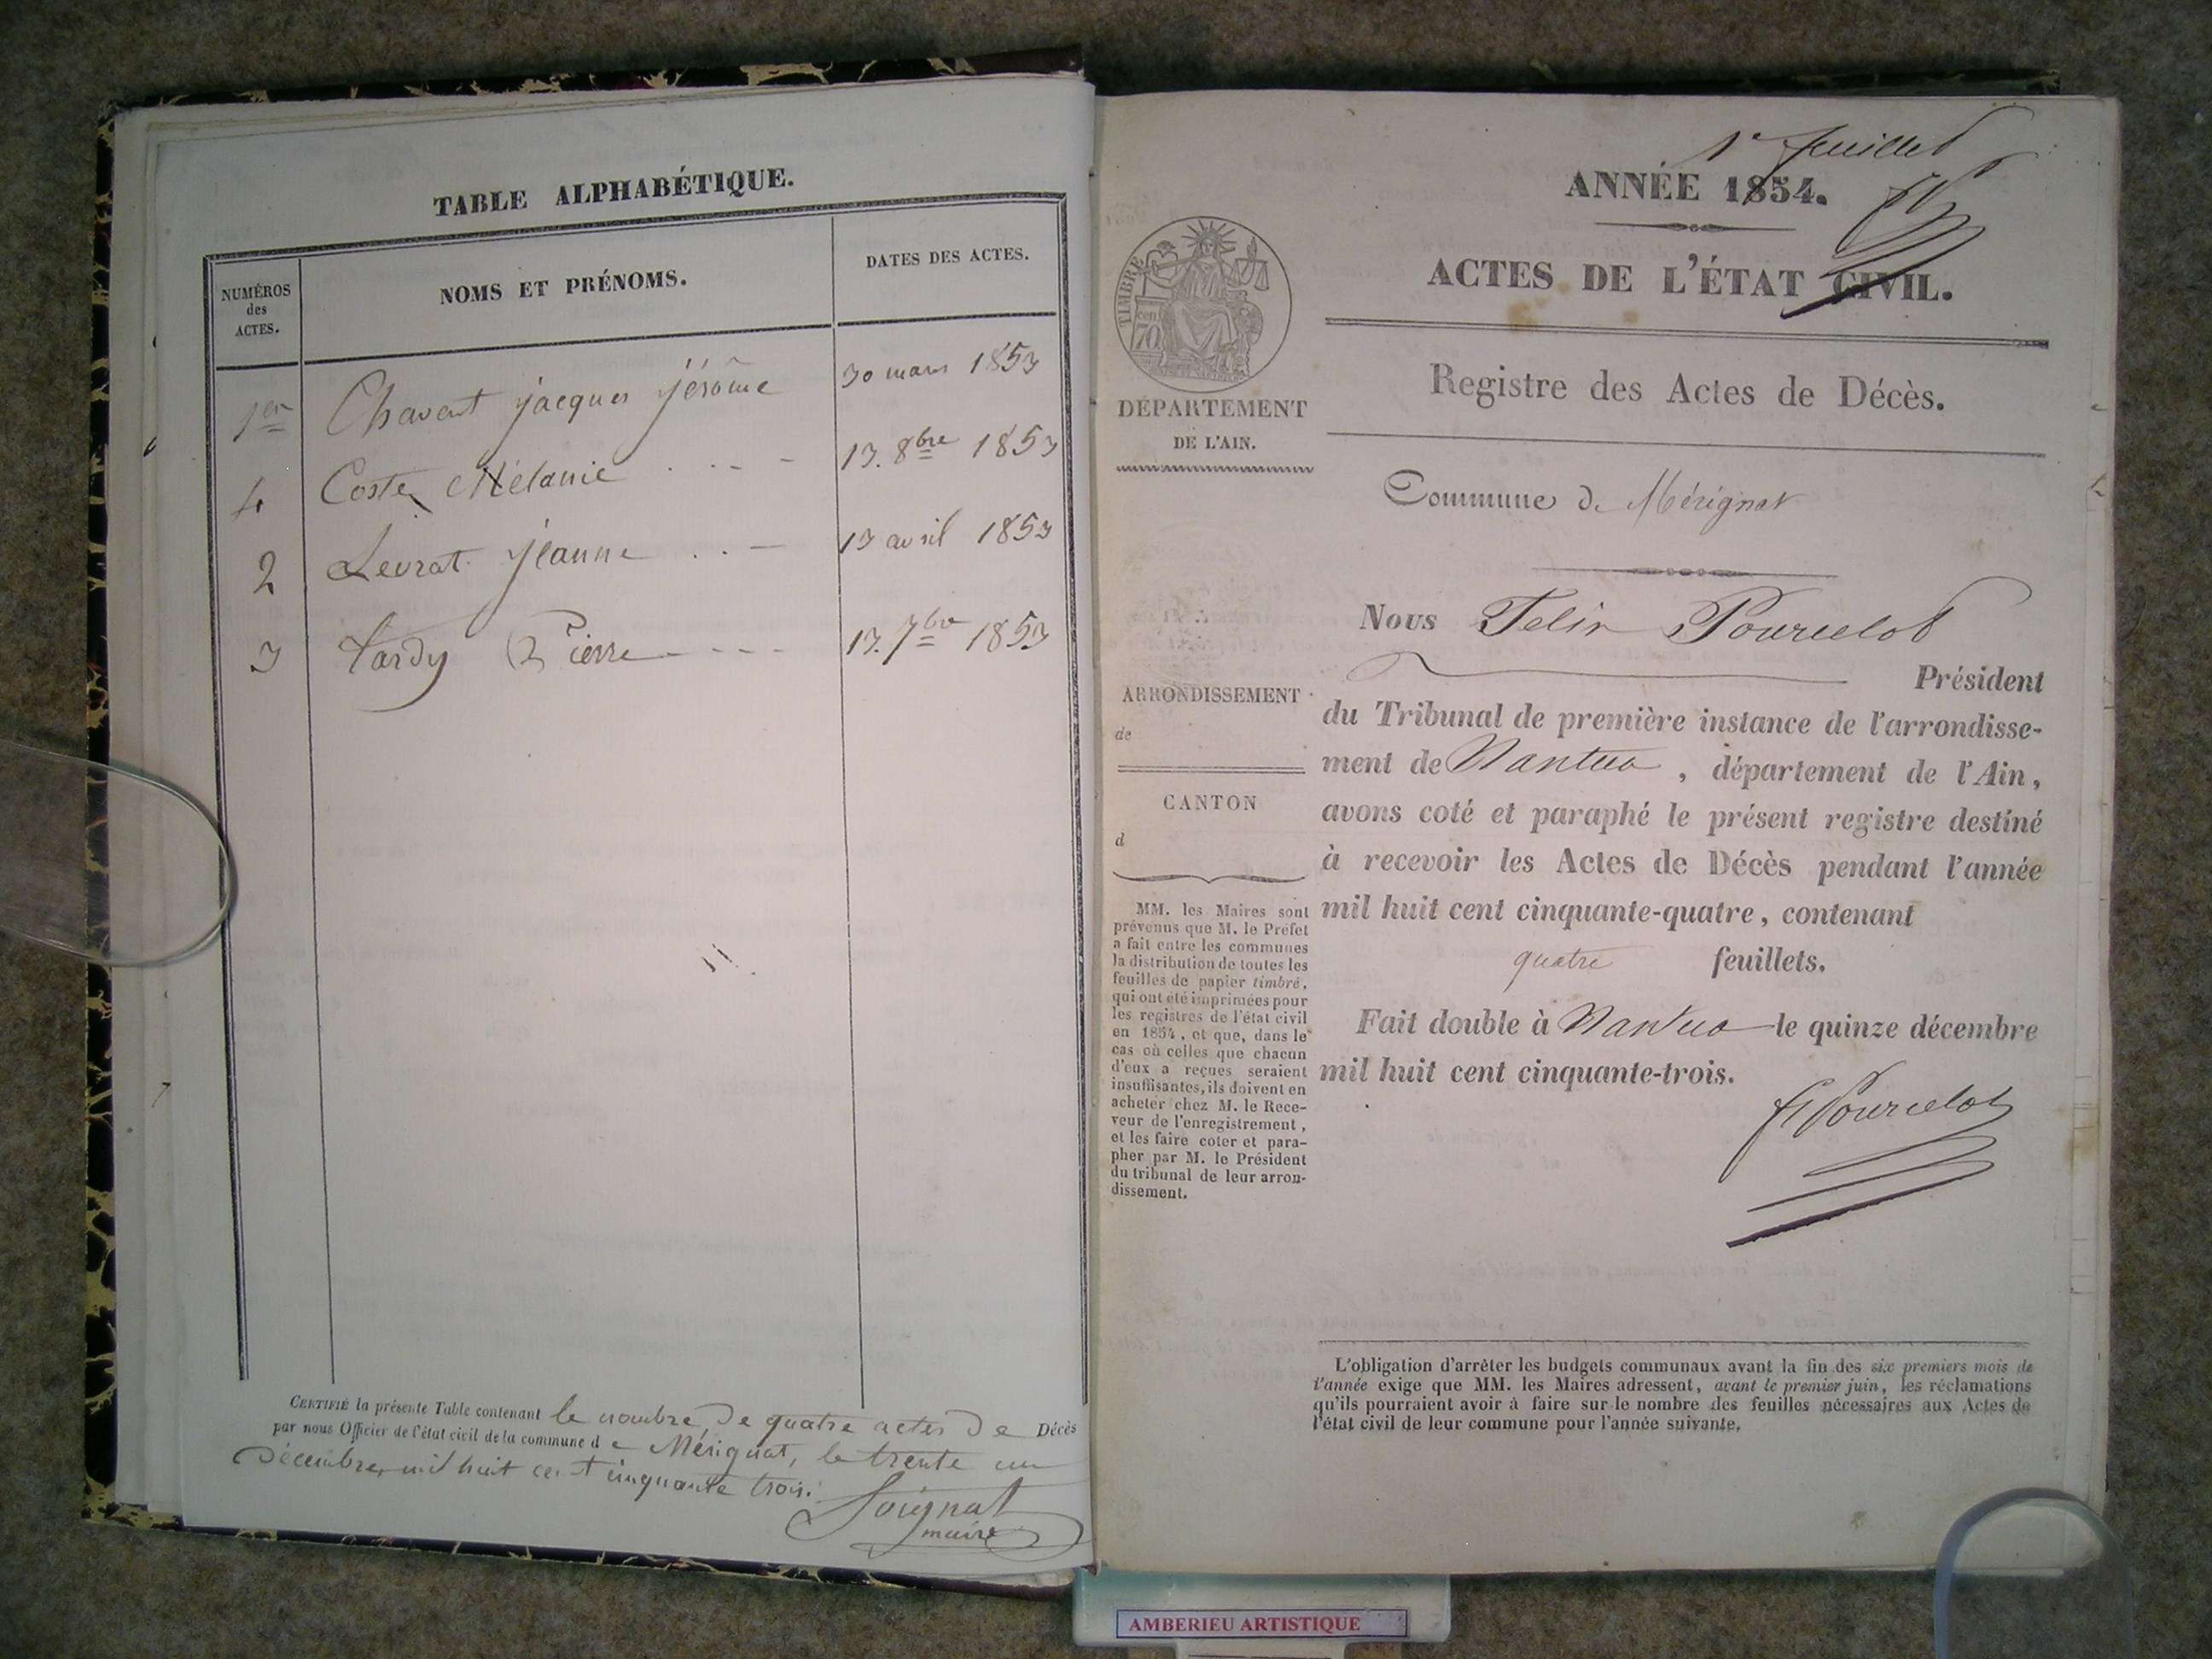 TABLE ALPHABÉTIQUE.
NUMÉROS
des
ACTES.
NOMS ET PRÉNOMS.
DATES DES ACTES.
1er Chavent jacques jérôme 30 mars 1853
4 Coste Mélanie . . - - 13. 8bre 1853
2 Levrat jeanne . . - 13 avril 1853
3 Tardy Pierre - - - - 13. 7bre 1853
CERTIFIÉ la présente Table contenant le nombre de quatre actes de Décès
par nous Officier de l'état civil de la commune de Mérignat, le trente un
Décembre mil huit cent cinquante trois.
Soignat
maire
1er feuillet
ANNÉE 1854.
ACTES DE L'ÉTAT CIVIL.
Registre des Actes de Décès.
TIMBRE
cen.
70
DÉPARTEMENT
DE L'AIN.
Commune de Mérignat
Nous Felix Pourcelot
Président
du Tribunal de première instance de l'arrondisse-
ment de Nantua, département de l'Ain,
avons coté et paraphé le présent registre destiné
à recevoir les Actes de Décès pendant l'année
mil huit cent cinquante-quatre, contenant
quatre feuillets.
Fait double à Nantua le quinze décembre
mil huit cent cinquante-trois.
F Pourcelot
ARRONDISSEMENT
de
CANTON
d
MM. les Maires sont
prévenus que M. le Préfet
a fait entre les communes
la distribution de toutes les
feuilles de papier timbré,
qui ont été imprimées pour
les registres de l'état civil
en 1854, et que, dans le
cas où celles que chacun
d'eux a reçues seraient
insuffisantes, ils doivent en
acheter chez M. le Rece-
veur de l'enregistrement,
et les faire coter et para-
pher par M. le Président
du tribunal de leur arron-
dissement.
L'obligation d'arrêter les budgets communaux avant la fin des six premiers mois de
l'année exige que MM. les Maires adressent, avant le premier juin, les réclamations
qu'ils pourraient avoir à faire sur le nombre des feuilles nécessaires aux Actes de
l'état civil de leur commune pour l'année suivante.
AMBERIEU ARTISTIQUE